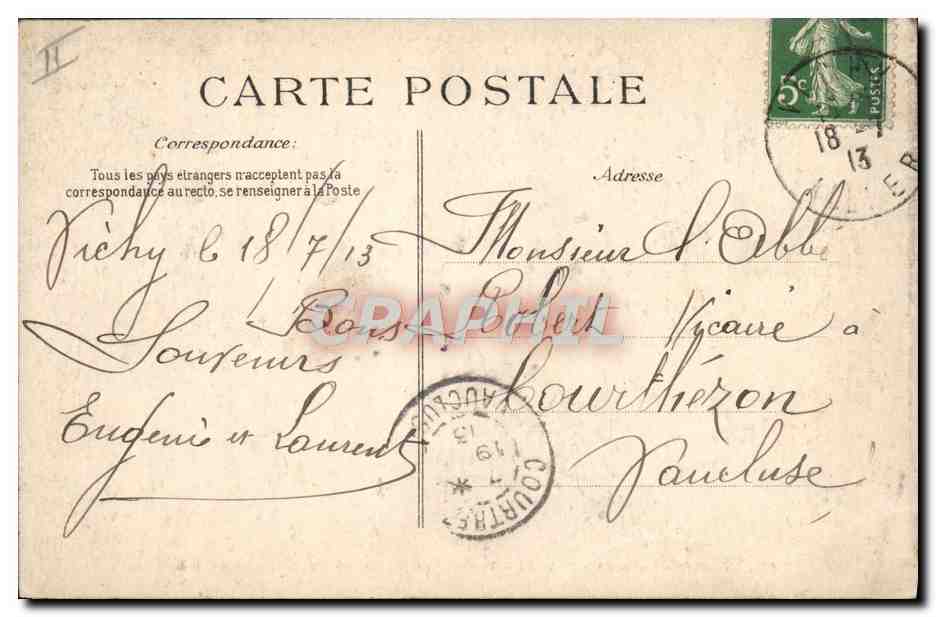 II
CARTE POSTALE
Correspondance:
Tous les pays étrangers n'acceptent pas la
correspondance au recto, se renseigner à la Poste
Vichy le 18/7/13
Bons
Souvenirs
Eugénie et Laurent
Adresse
Monsieur l'Abbé
Robert Vicaire à
Courthézon
Vaucluse
5c
POSTES
18
13
ER
COURTHEZ
VAUCLUSE
15
19
7
GRAPHIL